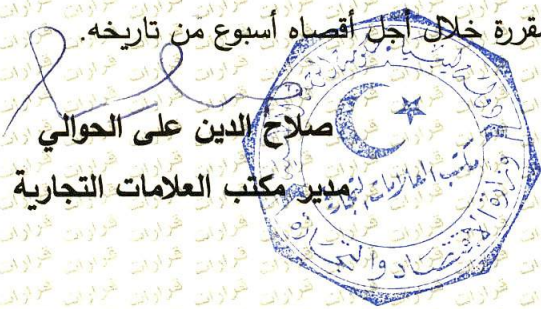 مقررة خلال أجل أقصاه أسبوع من تاريخه.
صلاح الدين على الحوالي
مدير مكتب العلامات التجارية
مكتب العلامات التجارية
وزارة الاقتصاد والتجارة
قرارات